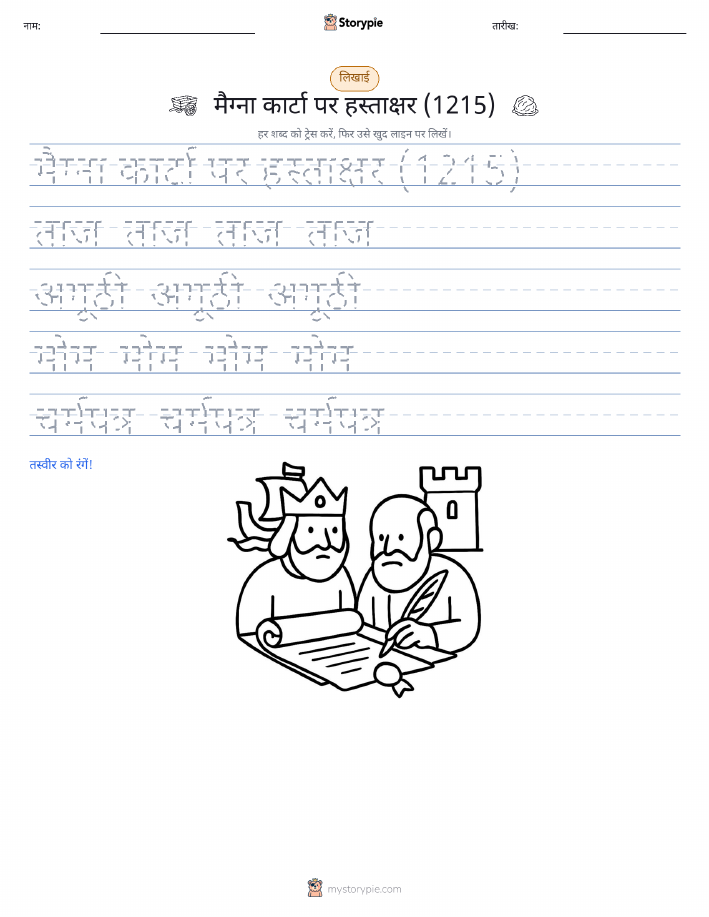 नाम:
Storypie
तारीख:
लिखाई
मैग्ना कार्टा पर हस्ताक्षर (1215)
हर शब्द को ट्रेस करें, फिर उसे खुद लाइन पर लिखें।
मैग्ना कार्टा पर हस्ताक्षर (1215)
ताज ताज ताज ताज
अंगूठी अंगूठी अंगूठी
मोम मोम मोम मोम
चर्मपत्र चर्मपत्र चर्मपत्र
तस्वीर को रंगें!
mystorypie.com